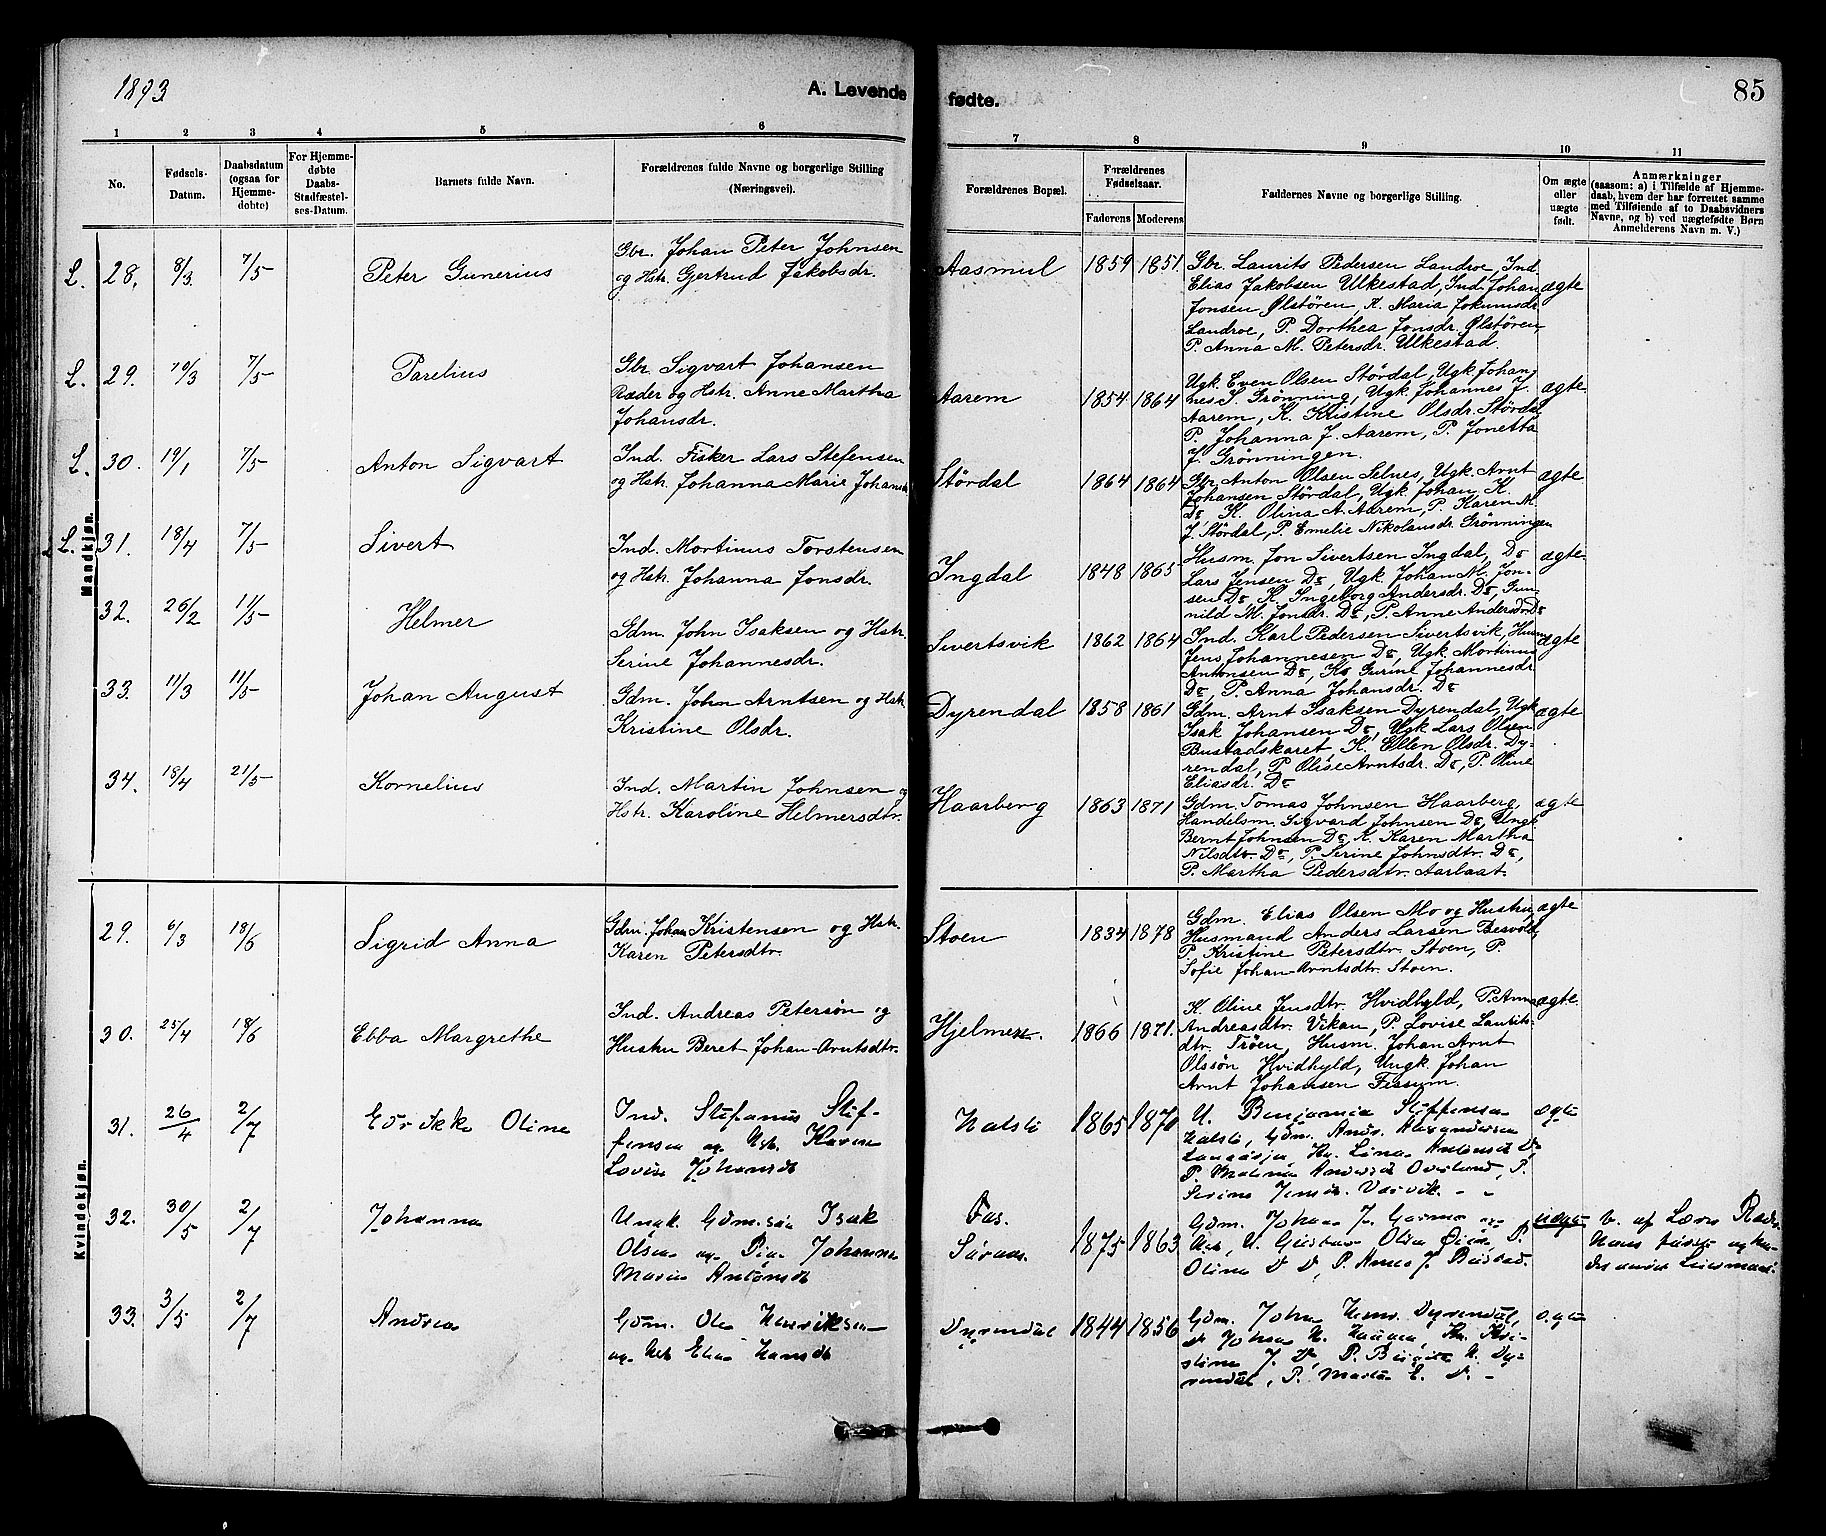 1893
A. Levende fødte.
85
1 2 3 4 5 6 7 8 9 10 11
No.
Fødsels-Datum.
Daabsdatum (ogsaa for Hjemme-døbte)
For Hjemme-døbte Daabs-Stadfæstel-ses-Datum.
Barnets fulde Navn.
Forældrenes fulde Navne og borgerlige Stilling (Næringsvei).
Forældrenes Bopæl.
Forældrenes Fødselsaar.
Faderens Moderens
Faddernes Navne og borgerlige Stilling.
Om ægte eller uægte født.
Anmærkninger
(saasom: a) i Tilfælde af Hjemme-
daab, hvem der har forrettet samme
med Tilføiende af to Daabsvidners
Navne, og b) ved uægtefødte Børn
Anmelderens Navn m. V.)
Mandkjøn.
L. 28. 8/3 7/5 Peter Gunerius
Gbr. Johan Peter Johnsen
og Hstr. Gjertrud Jakobsdr.
Aasmul 1859 1851.
Gbr. Laurits Pedersen Landroe, Ind.
Elias Jakobsen Ulkestad, Ind. Johan
Jonsen Ølstören, K. Maria Jokumsdr
Landroe, P. Dorthea Jonsdr. Ølstören,
P. Anna M. Petersdr. Ulkestad.
ægte
L. 29. 10/3 7/5 Parelius
Gbr. Sigvart Johansen
Ræder og Hstr. Anne Martha
Johansdr.
Aarem 1854 1864
Ugk. Even Olsen Stördal, Ugk Johan-
nes S. Grönning, Ugk Johannes J.
Aarem, K. Kristine Olsdr. Stördal
P. Johanna J. Aarem, P. Jonetta
J. Grönningen.
ægte
L. 30. 19/1 7/5 Anton Sigvart
Ind. Fisker Lars Stefensen
og Hstr. Johanna Marie Johansdr
Stördal 1864 1864
Gbr. Anton Olsen Selnes, Ugk. Arnt
Johansen Stördal, Ugk. Johan K.
Do K. Olina A. Aarem, P. Karen M.
J. Stördal, P. Emelie Nikolausdr. Grönningen
ægte
L. 31. 18/4 7/5 Sivert
Ind. Mortinus Torstensen
og Hstr. Johanna Jonsdr.
Ingdal 1848 1865
Husm. Jon Sivertsen Ingdal, Do
Lars Jensen Do, Ugk. Johan M. Jon-
sen Do, K. Ingeborg Andersdr. Do, Gun-
nild M. Jonsdr. Do, P. Anne Andersdr. Do
ægte
32. 26/2 11/5 Helmer
Gdm. John Isaksen og Hstr.
Serine Johannesdr.
Sivertsvik 1862 1864
Ind. Karl Pedersen Sivertsvik, Husm
Jens Johannesen Do, Ugk. Mortinus
Antonsen Do, K. Gurine Johannesdr
Do, P. Anna Johansdr. Do
ægte
33. 11/3 11/5 Johan August
Gdm. John Arntsen og Hstr.
Kristine Olsdr.
Dyrendal 1858 1861
Gdm. Arnt Isaksen Dyrendal, Ugk
Isak Johansen Do, Ugk Lars Olsen
Bustadskaret, K. Ellen Olsdr. Dy-
rendal, P. Olise Arntsdr. Do, P. Oline
Eliasdr. Do
ægte
34. 18/4 21/5 Kornelius
Ind. Martin Johnsen og
Hstr. Karoline Helmersdtr.
Haarberg 1863 1871
Gdm. Tomas Johnsen Haarberg,
Handelsm. Sigvard Johnsen Do, Ungk
Bernt Johnsen Do, K. Karen Martha
Nilsdtr. Do, P. Serine Johnsdtr. Do,
P. Martha Pedersdtr. Aarlaat.
ægte
Kvindekjøn.
29. 6/3 18/6 Sigrid Anna
Gdm. Johan Kristensen og Hstr.
Karen Petersdtr.
Stoen 1834 1878
Gdm. Elias Olsen Mo og Hustru,
Husmand Anders Larsen Besvold,
P. Kristine Petersdtr. Stoen, P.
Sofie Johan-Arntsdtr. Stoen.
ægte
30. 25/4 18/6 Ebba Margrethe
Ind. Andreas Petersön og
Hustru Beret Johan-Arntsdtr.
Hjelmen. 1866 1871.
K. Oline Jensdtr. Hvidhyld, P. Anna
Andreasdtr. Vikan, P. Lovise Laurits-
dtr. Tröen, Husm. Johan Arnt
Olssön Hvidhyld, Ungk. Johan
Arnt Johansen Fissum.
ægte
31. 26/4 2/7 Edrikke Oline
Ind. Stefanus Stef-
fensen og Hstr. Karen
Lovise Johansdt
1865 1870
U. Benjamin Steffensen
Gdm. Andr. Alexandersen
Lina Antonsdt Do
P.
ægte
32. 30/5 2/7 Johanna
Ungk. Gdm.søn Isak
Olsen og Pige Johanna
Marie Antonsdt
1875 1863
Gdm. Johan J.
Olina D D, P. Anna J.
uægte
B. af Lars
33. 3/5 2/7 Andrea
Gdm. Ole Henriksen
og Hstr Elen Hansdt
Dyrendal 1844 1856
Gdm. Johan Hans. Dyrendal,
Do Johan H. Kri-
stine J. D, P. Dy-
rendal, P. Marta E. D.
ægte